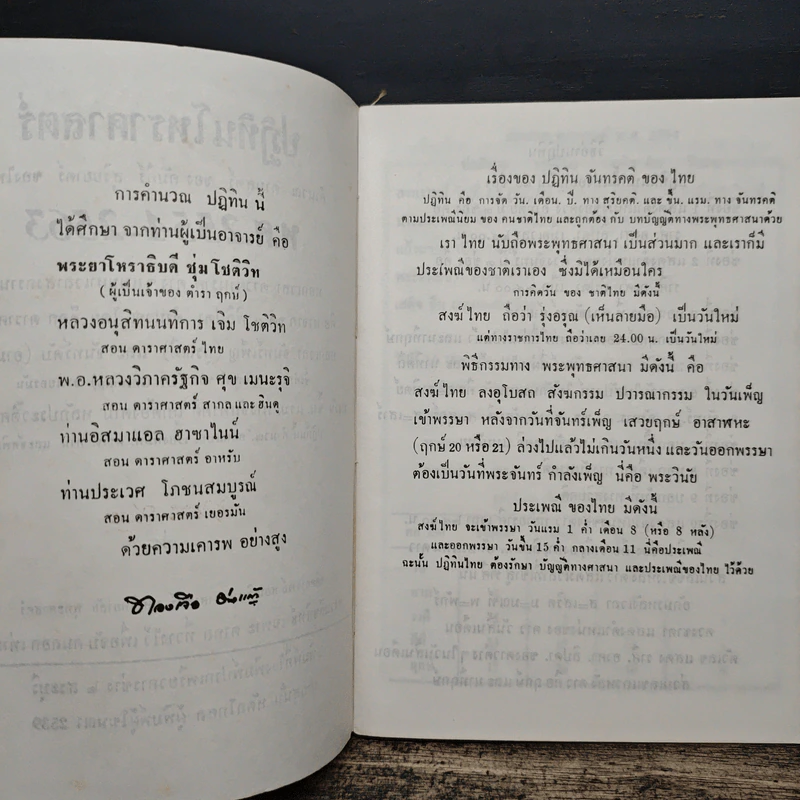 การคำนวณ ปฏิทิน นี้
ได้ศึกษา จากท่านผู้เป็นอาจารย์ คือ
พระยาโหราธิบดี ชุ่ม โชติวิท
(ผู้เป็นเจ้าของ ตำรา ฤกษ์)
หลวงอนุสิทนนทิการ เจิม โชติวิท
สอน ดาราศาสตร์ ไทย
พ.อ.หลวงวิภาครัฐกิจ ศุข เมนะรุจิ
สอน ดาราศาสตร์ สากล และ ฮินดู
ท่านอิสมาแอล ฮาซาไนน์
สอน ดาราศาสตร์ อาหรับ
ท่านประเวศ โภชนสมบูรณ์
สอน ดาราศาสตร์ เยอรมัน
ด้วยความเคารพ อย่างสูง
เรื่องของ ปฏิทิน จันทรคติ ของ ไทย
ปฏิทิน คือ การจัด วัน. เดือน. ปี. ทาง สุริยคติ. และ ขึ้น. แรม. ทาง จันทรคติ
ตามประเพณีนิยม ของ คนชาติไทย และถูกต้อง กับ บทบัญญัติทางพระพุทธศาสนาด้วย
เรา ไทย นับถือพระพุทธศาสนา เป็นส่วนมาก และเราก็มี
ประเพณีของชาติเราเอง ซึ่งมิได้เหมือนใคร
การคิดวัน ของ ชาติไทย มีดังนี้
สงฆ์ ไทย ถือว่า รุ่งอรุณ (เห็นลายมือ) เป็นวันใหม่
แต่ทางราชการไทย ถือว่าเลย 24.00 น. เป็นวันใหม่
พิธีกรรมทาง พระพุทธศาสนา มีดังนี้ คือ
สงฆ์ ไทย ลงอุโบสถ สังฆกรรม ปวารณากรรม ในวันเพ็ญ
เข้าพรรษา หลังจากวันที่จันทร์เพ็ญ เสวยฤกษ์ อาสาฬหะ
(ฤกษ์ 20 หรือ 21) ล่วงไปแล้วไม่เกินวันหนึ่ง และวันออกพรรษา
ต้องเป็นวันที่พระจันทร์ กำลังเพ็ญ นี่คือ พระวินัย
ประเพณี ของไทย มีดังนี้
สงฆ์ ไทย จะเข้าพรรษา วันแรม 1 ค่ำ เดือน 8 (หรือ 8 หลัง)
และออกพรรษา วันขึ้น 15 ค่ำ กลางเดือน 11 นี่คือประเพณี
ฉะนั้น ปฏิทินไทย ต้องรักษา บัญญัติทางศาสนา และประเพณีของไทย ไว้ด้วย